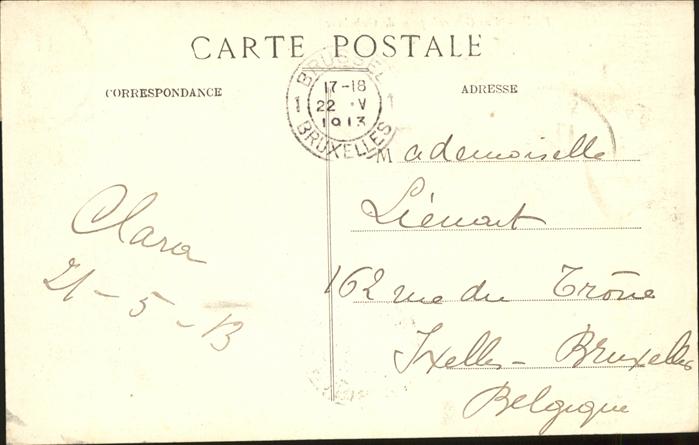 CARTE POSTALE
CORRESPONDANCE
ADRESSE
BRUSSEL
17-18
1 22 V 1
1913
BRUXELLES
Mademoiselle
Liénart
162 rue du Trône
Ixelles - Bruxelles
Belgique
Clara
21-5-13